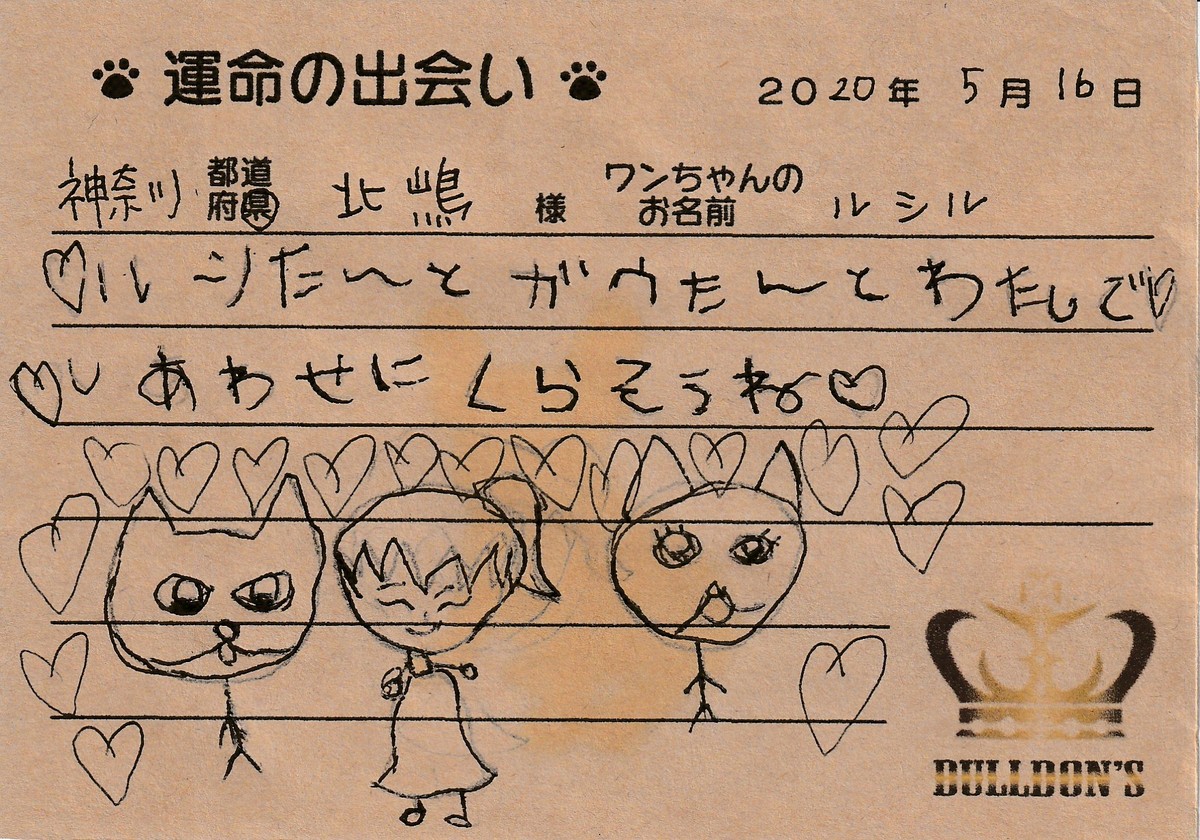 運命の出会い 2020年 5月 16日
神奈川 都道府県 北嶋 様 ワンちゃんのお名前 ルシル
ルシたーんと ガウたんと わたしで
しあわせに くらそうね
BULLDON'S